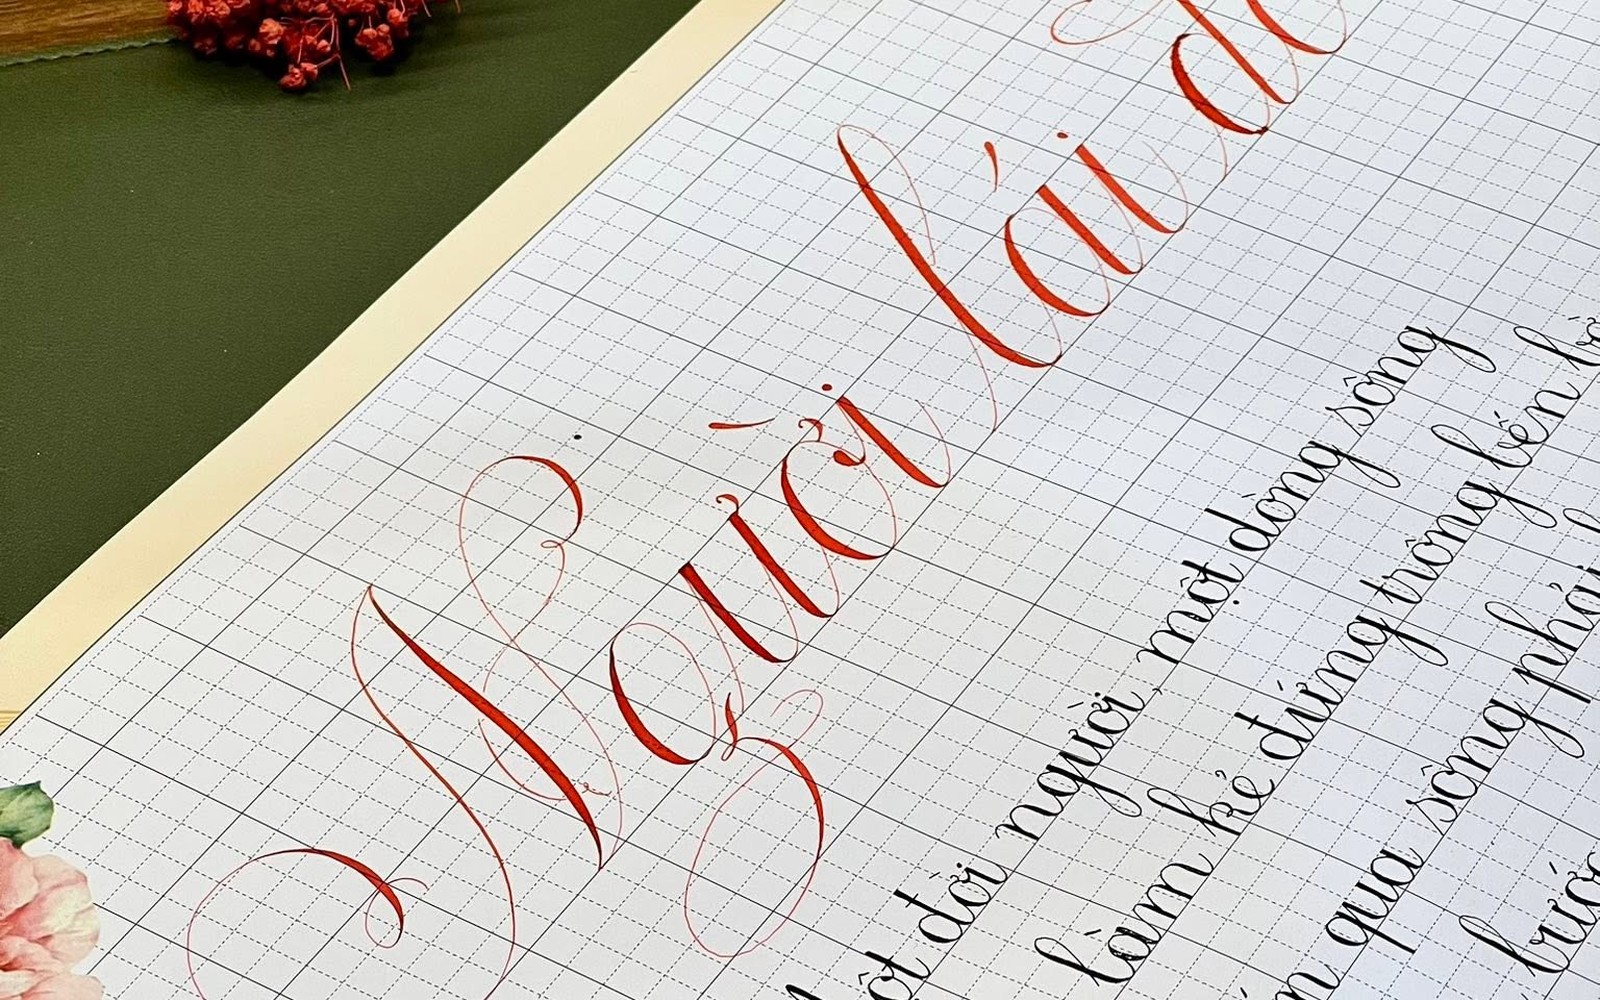 Người lái
Một đời người, một dòng sông
làm kẻ đứng trông bến bờ
qua sông phải